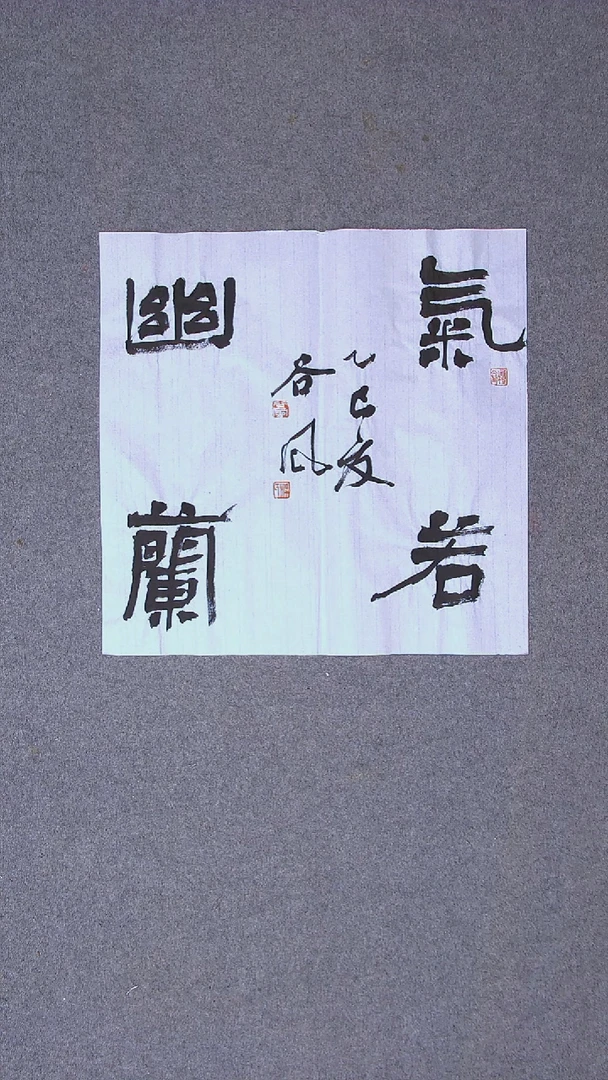 氣若
幽蘭
乙巳夏
谷風